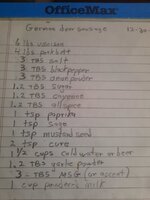 OfficeMax
German deer sausage 12-30
6 lbs venison
4 lbs pork butt
3 TBS salt
3 TBS black pepper
3 TBS onion powder
1.2 TBS sugar
1.2 TBS cayenne
1.2 TBS allspice
1 tsp paprika
1 tsp sage
1 tsp mustard seed
2 tsp cure
1 1/2 cups cold water or beer
1.2 TBS garlic powder
3 = TBS MSG (or accent)
1 cup powdered milk